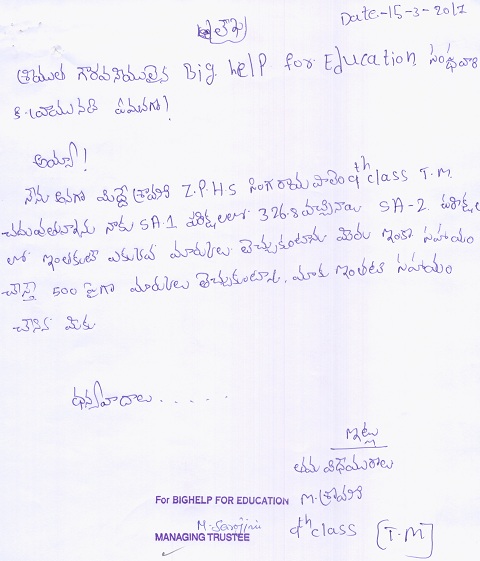 లేఖ
Date-15-3-2017
శ్రీయుత గౌరవనీయులైన Big help For Education సంస్థ వారి
కి వ్రాయునది ఏమనగా!
అయ్యా!
నేను అనగా మిద్దే శ్రావణి Z.P.H.S సింగరాయపాలెం 9th class T.M.
చదువుతున్నాను నాకు SA.1 పరీక్షలలో 326.8 వచ్చినాయి SA-2 పరీక్షల
లో ఇంతకంటే ఎక్కువ మార్కులు తెచ్చుకుంటాను మీరు ఇంకా సహాయం
చేస్తే 500 పైగా మార్కులు తెచ్చుకుంటాను. మాకు ఇంతటి సహాయం
చేసిన మీకు
ధన్యవాదాలు.....
ఇట్లు
తమ విధేయురాలు
M. శ్రావణి
9th class [T.M]
For BIGHELP FOR EDUCATION
M. Sarojini
MANAGING TRUSTEE